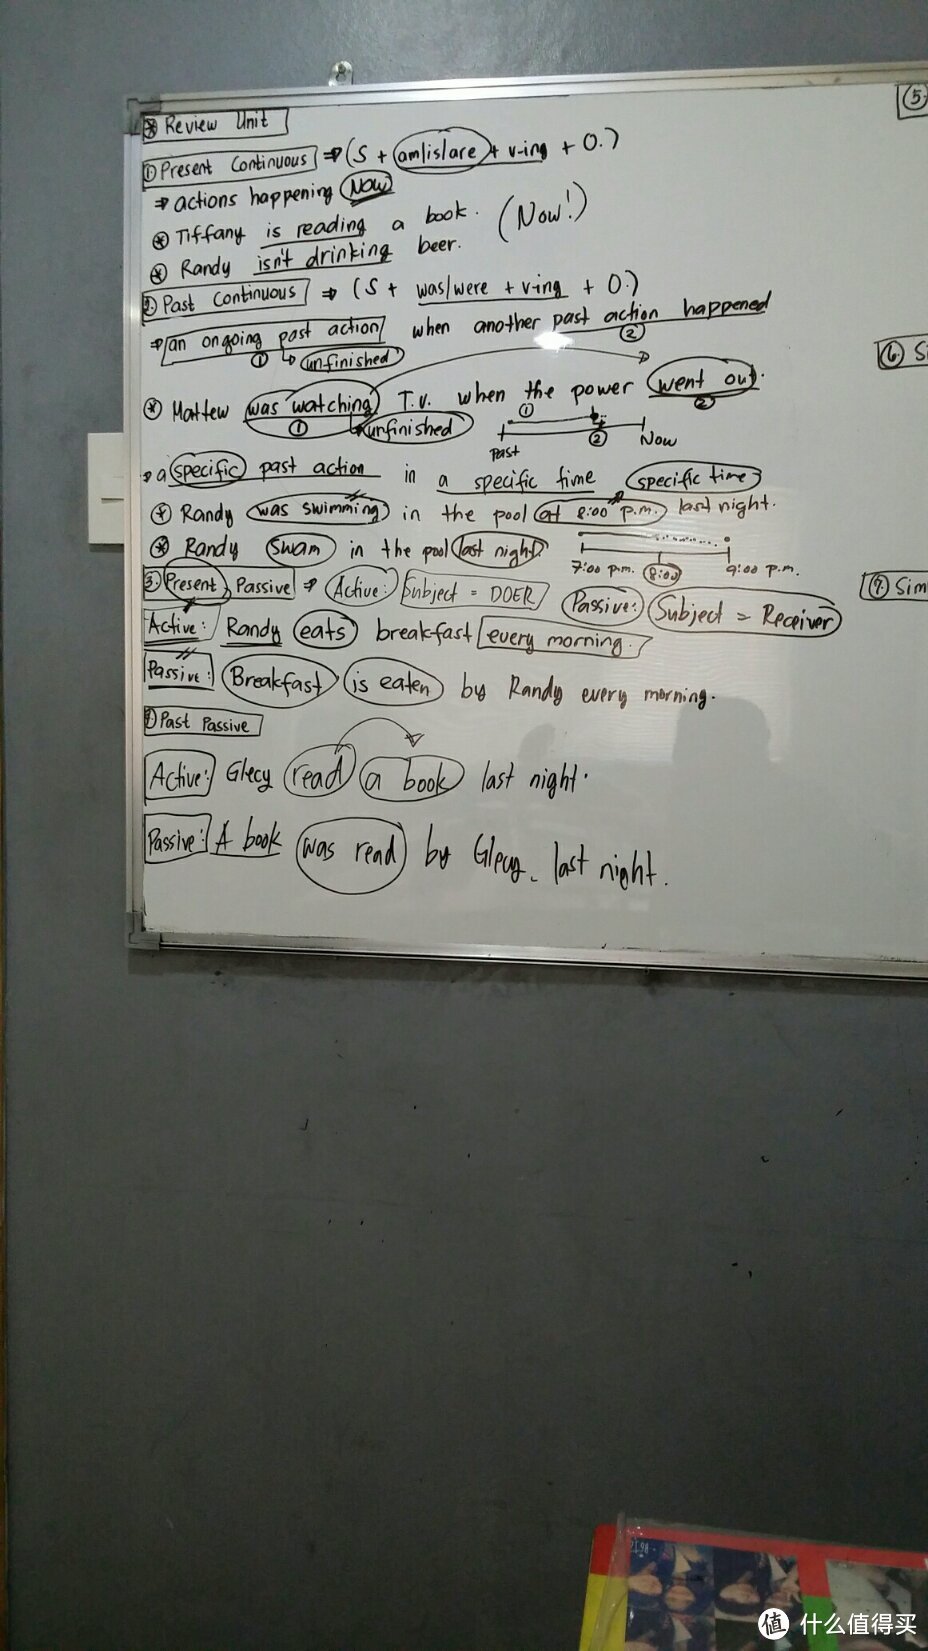 * Review Unit
① Present Continuous ⇒ (S + am/is/are + v-ing + O.)
⇒ actions happening Now
* Tiffany is reading a book. (Now!)
* Randy isn't drinking beer.
2. Past Continuous ⇒ (S + was/were + v-ing + O.)
⇒ an ongoing past action when another past action happened
① unfinished ②
* Mattew was watching T.V. when the power went out.
① unfinished ②
① ② Past Now
⇒ a specific past action in a specific time specific time
* Randy was swimming in the pool at 8:00 p.m. last night.
* Randy swam in the pool last night.
7:00 p.m. 8:00 9:00 p.m.
3. Present Passive ⇒ Active: Subject = DOER Passive: Subject = Receiver
Active: Randy eats breakfast every morning.
Passive: Breakfast is eaten by Randy every morning.
4. Past Passive
Active: Glecy read a book last night.
Passive: A book was read by Glecy last night.
⑤
⑥ Si
⑦ Sim
值 什么值得买